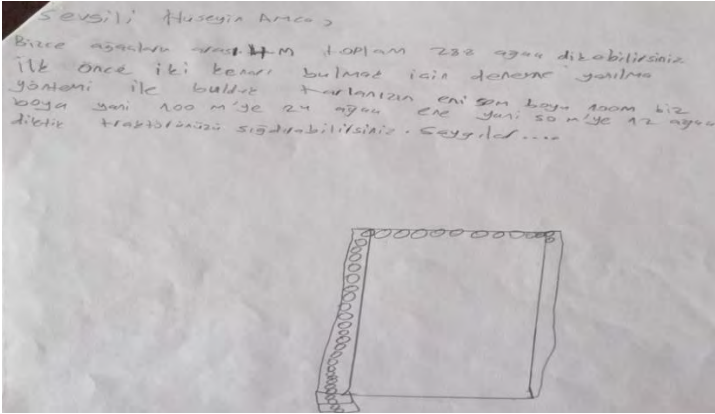 Sevgili Hüseyin Amca,
Bizce ağaçların arası 4 M toplam 288 ağaç dikebilirsiniz
ilk önce iki kenarı bulmak için deneme yanılma
yöntemi ile bulduk tarlanızın eni 50m boyu 100m biz
boya yani 100 m'ye 24 ağaç ene yani 50 m'ye 12 ağaç
diktik traktörünüzü sığdırabilirsiniz. Saygılar....